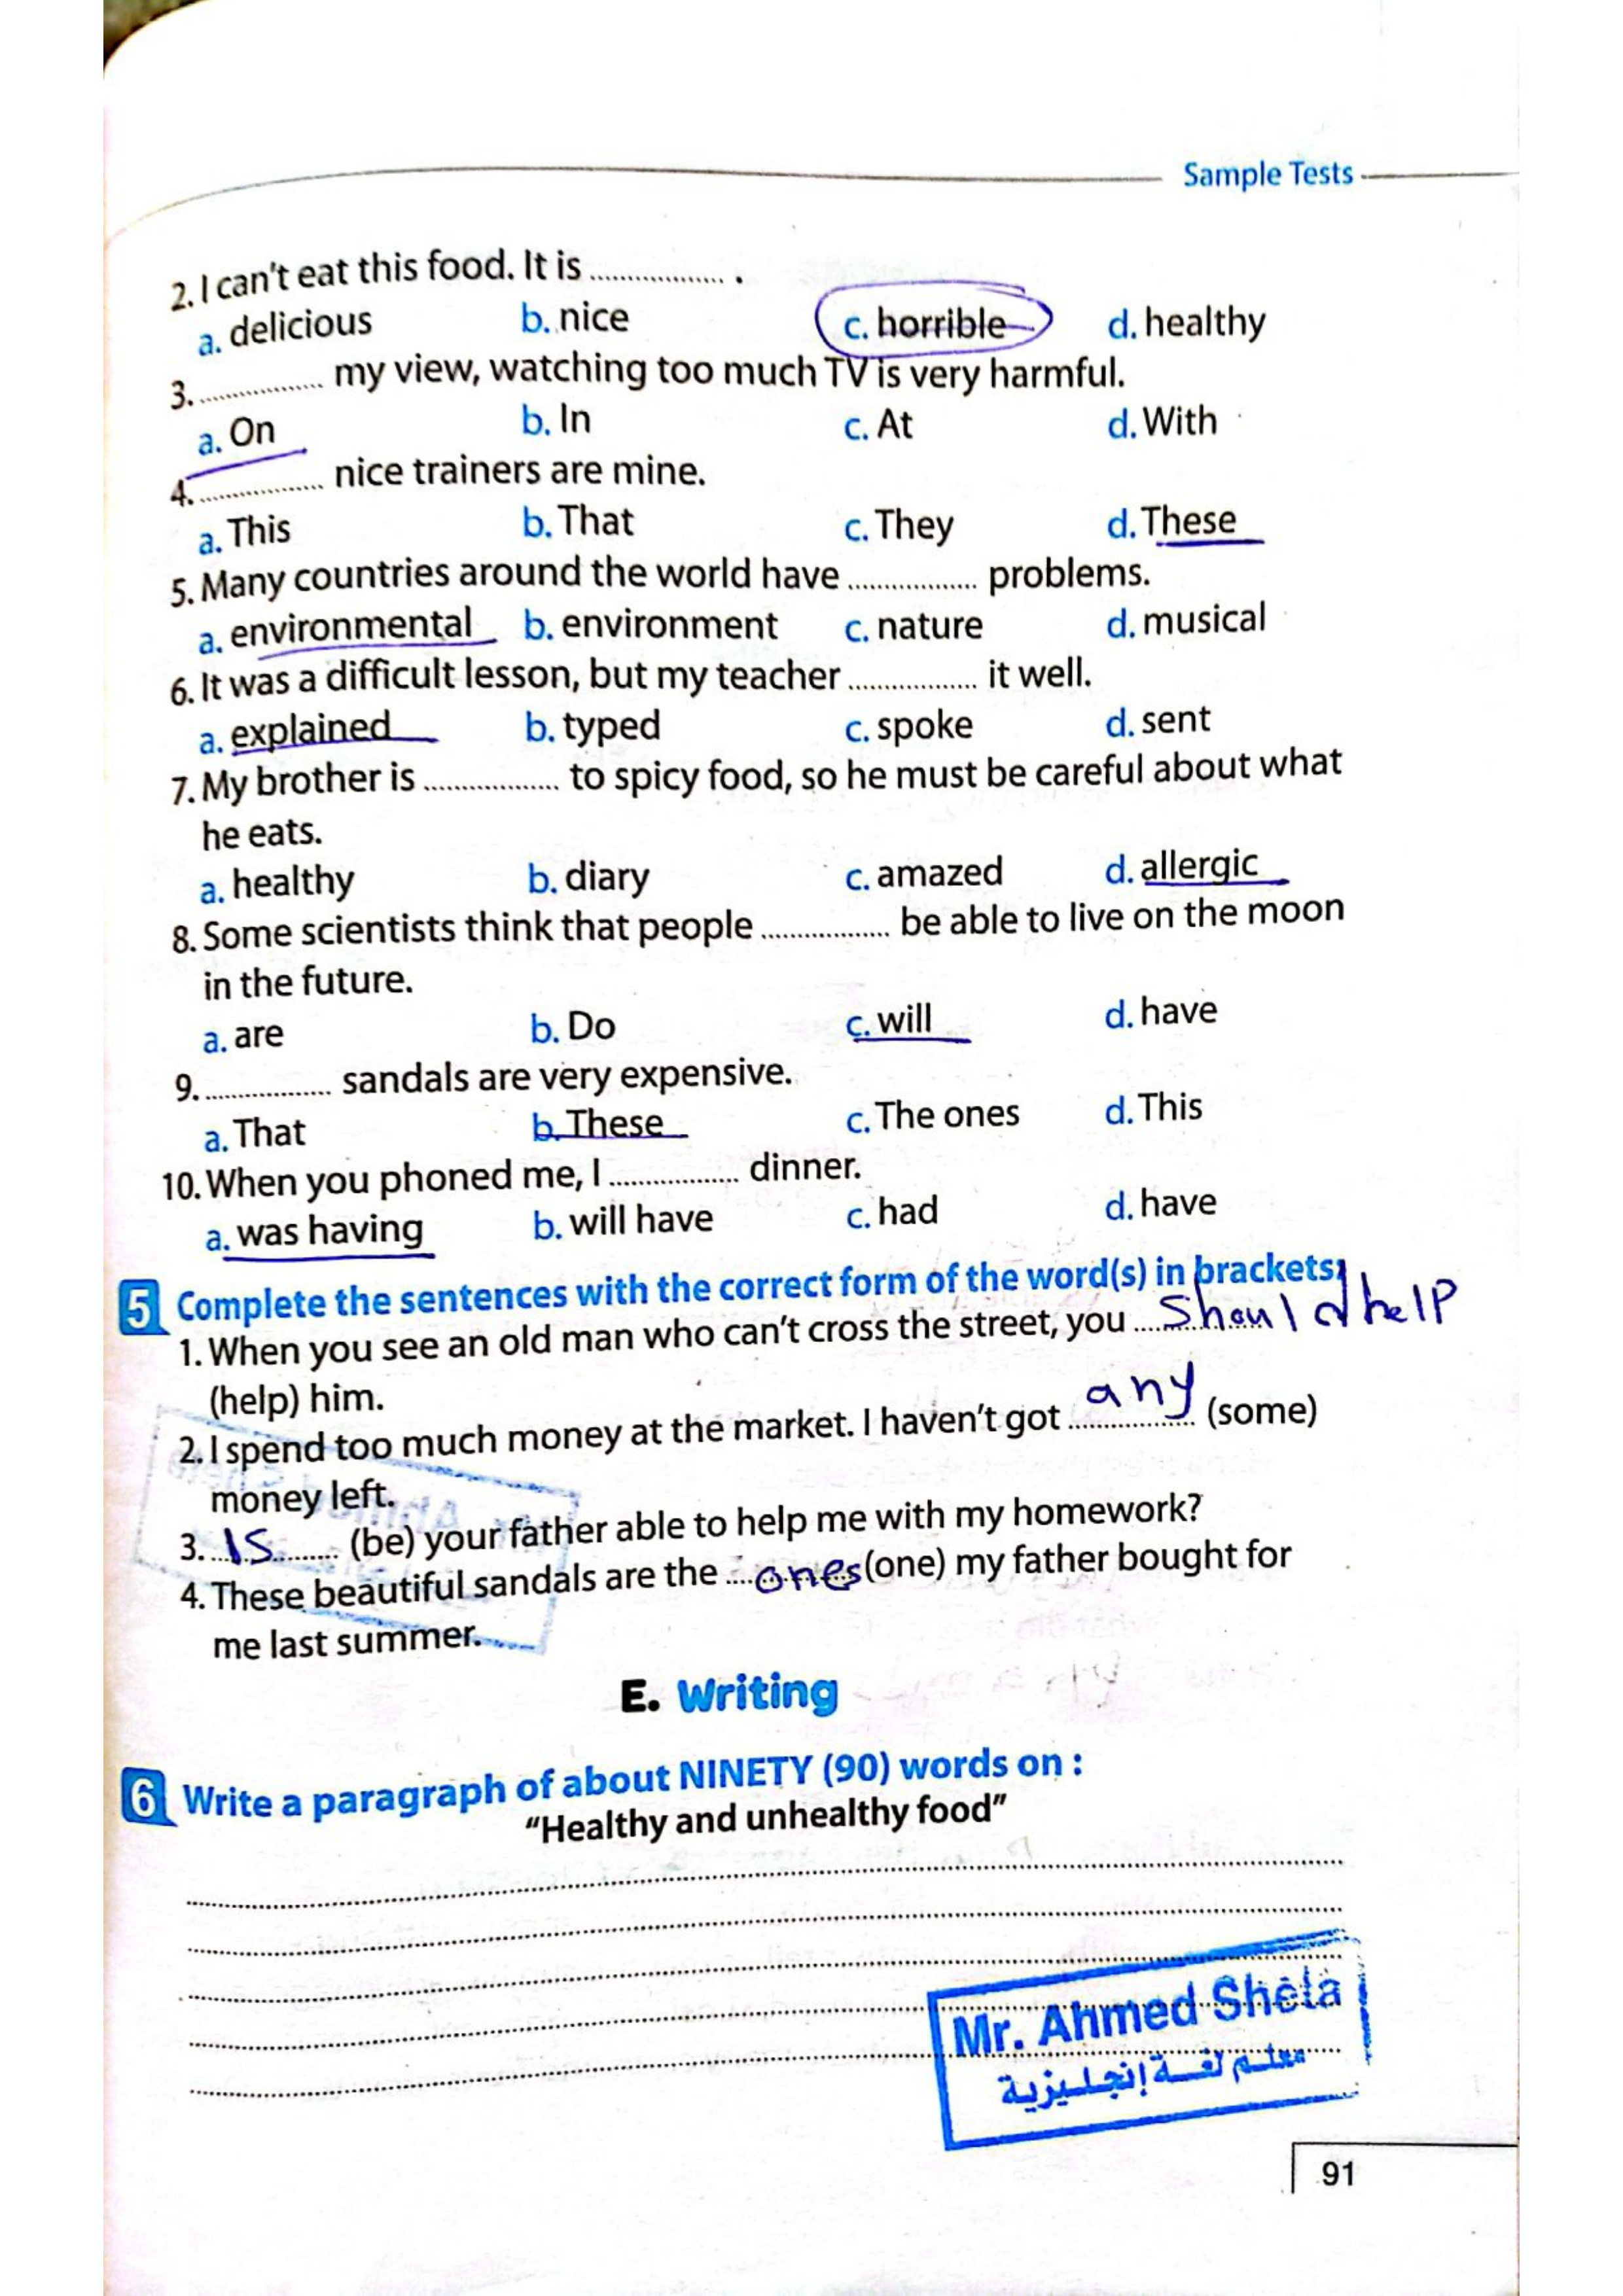 Sample Tests
2. I can't eat this food. It is ................. .
a. delicious b. nice c. horrible d. healthy
3. ................. my view, watching too much TV is very harmful.
a. On b. In c. At d. With
4. ................. nice trainers are mine.
a. This b. That c. They d. These
5. Many countries around the world have ................. problems.
a. environmental b. environment c. nature d. musical
6. It was a difficult lesson, but my teacher ................. it well.
a. explained b. typed c. spoke d. sent
7. My brother is ................. to spicy food, so he must be careful about what
he eats.
a. healthy b. diary c. amazed d. allergic
8. Some scientists think that people ................. be able to live on the moon
in the future.
a. are b. Do c. will d. have
9. ................. sandals are very expensive.
a. That b. These c. The ones d. This
10. When you phoned me, I ................. dinner.
a. was having b. will have c. had d. have
5 Complete the sentences with the correct form of the word(s) in brackets:
1. When you see an old man who can't cross the street, you should help
(help) him.
2. I spend too much money at the market. I haven't got any (some)
money left.
3. Is (be) your father able to help me with my homework?
4. These beautiful sandals are the ones (one) my father bought for
me last summer.
E. Writing
6 Write a paragraph of about NINETY (90) words on :
"Healthy and unhealthy food"
Mr. Ahmed Shela
معلم لغة إنجليزية
91